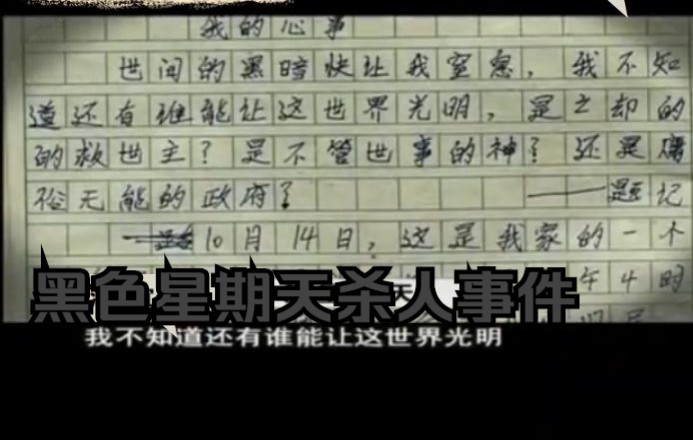 我的心事
世间的黑暗快让我窒息，我不知
道还有谁能让这世界光明，是之却的
的救世主？是不管世事的神？还是庸
俗无能的政府？
——题记
10月14日，这是我家的一个
天
午4时
黑色星期天杀人事件
我不知道还有谁能让这世界光明